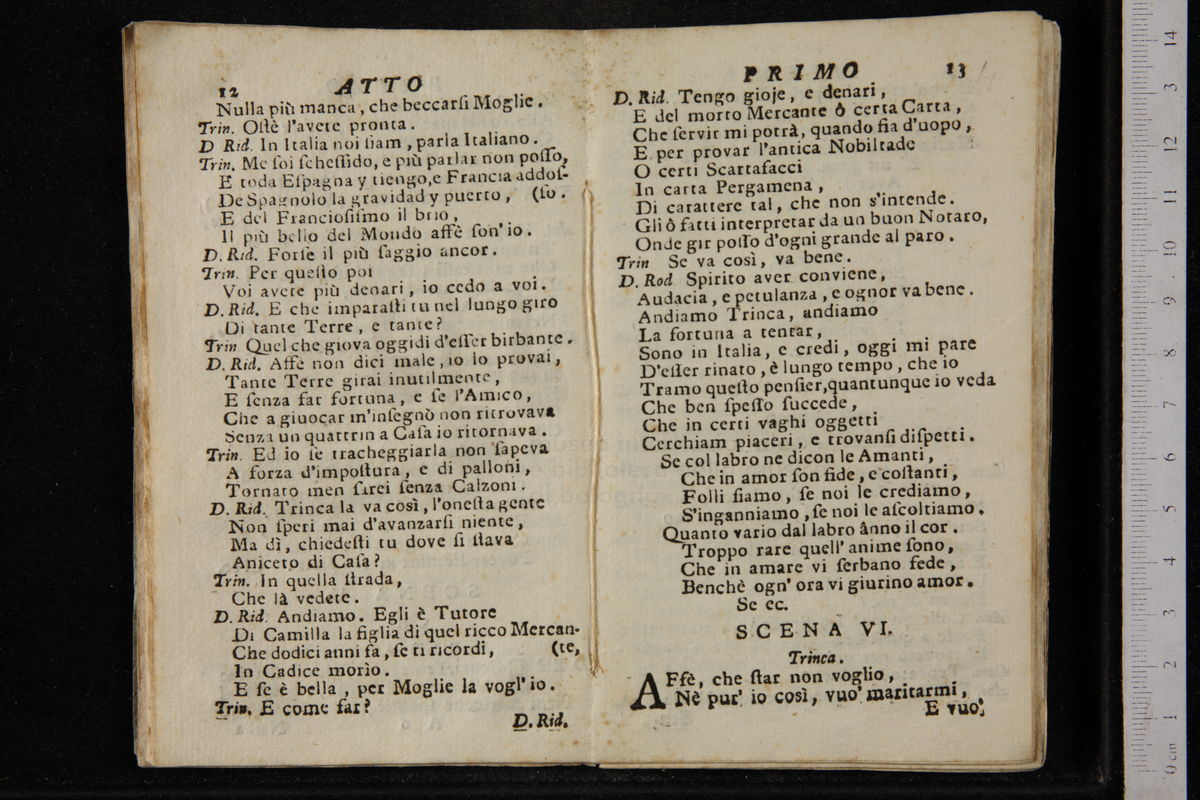 12 ATTO
Nulla più manca, che beccarſi Moglie.
Trin. Oſtè l'avete pronta.
D Rid. In Italia noi ſiam, parla Italiano.
Trin. Me ſoi ſcheſſido, e più parlar non poſſo,
E toda Eſpagna y tiengo, e Francia addoſ-
De Spagnolo la gravidad y puerto, (ſo.
E del Francioſiſmo il brio,
Il più bello del Mondo affè ſon' io.
D. Rid. Forſe il più ſaggio ancor.
Trin. Per queſto poi
Voi avete più denari, io cedo a voi.
D. Rid. E che imparaſti tu nel lungo giro
Di tante Terre, e tante?
Trin Quel che giova oggidì d'eſſer birbante.
D. Rid. Affè non dici male, io lo provai,
Tante Terre girai inutilmente,
E ſenza far fortuna, e ſe l'Amico,
Che a giuocar m'inſegnò non ritrovava
Senza un quattrin a Caſa io ritornava.
Trin. Ed io ſe tracheggiarla non ſapeva
A forza d'impoſtura, e di palloni,
Tornato men ſarei ſenza Calzoni.
D. Rid. Trinca la va così, l'oneſta gente
Non ſperi mai d'avanzarſi niente,
Ma dì, chiedeſti tu dove ſi ſtava
Aniceto di Caſa?
Trin. In quella ſtrada,
Che là vedete.
D. Rid. Andiamo. Egli è Tutore
Di Camilla la figlia di quel ricco Mercan-
Che dodici anni fa, ſe ti ricordi, (te,
In Cadice morìo.
E ſe è bella, per Moglie la vogl' io.
Trin. E come far?
D. Rid.
PRIMO 13
D. Rid. Tengo gioje, e denari,
E del morto Mercante ô certa Carta,
Che ſervir mi potrà, quando fia d'uopo,
E per provar l'antica Nobiltade
O certi Scartafacci
In carta Pergamena,
Di carattere tal, che non s'intende.
Gli ô fatti interpretar da un buon Notaro,
Onde gir poſſo d'ogni grande al paro.
Trin Se va così, va bene.
D. Rod Spirito aver conviene,
Audacia, e petulanza, e ognor va bene.
Andiamo Trinca, andiamo
La fortuna a tentar,
Sono in Italia, e credi, oggi mi pare
D'eſſer rinato, è lungo tempo, che io
Tramo queſto penſier, quantunque io veda
Che ben ſpeſſo ſuccede,
Che in certi vaghi oggetti
Cerchiam piaceri, e trovanſi diſpetti.
Se col labro ne dicon le Amanti,
Che in amor ſon fide, e coſtanti,
Folli ſiamo, ſe noi le crediamo,
S'inganniamo, ſe noi le aſcoltiamo.
Quanto vario dal labro ânno il cor.
Troppo rare quell' anime ſono,
Che in amare vi ſerbano fede,
Benchè ogn' ora vi giurino amor.
Se ec.
SCENA VI.
Trinca.
AFfè, che ſtar non voglio,
Nè pur' io così, vuo' maritarmi,
E vuo'